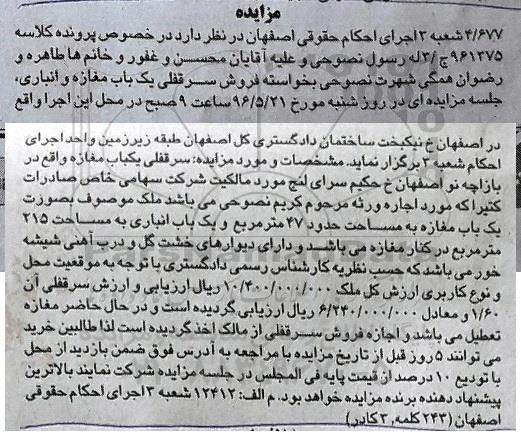 مزایده
۴/۶۷۷ شعبه ۳ اجرای احکام حقوقی اصفهان در نظر دارد در خصوص پرونده کلاسه
۹۶۱۳۷۵ ج/۳ له رسول نصوحی و علیه آقایان محسن و غفور و خانم ها طاهره و
رضوان همگی شهرت نصوحی بخواسته فروش سرقفلی یک باب مغازه و انباری،
جلسه مزایده ای در روز شنبه مورخ ۹۶/۵/۲۱ ساعت ۹ صبح در محل این اجرا واقع
در اصفهان خ نیکبخت ساختمان دادگستری کل اصفهان طبقه زیرزمین واحد اجرای
احکام شعبه ۳ برگزار نماید. مشخصات و مورد مزایده: سرقفلی یکباب مغازه واقع در
بازارچه نو اصفهان خ حکیم سرای لنج مورد مالکیت شرکت سهامی خاص صادرات
کتیرا که مورد اجاره ورثه مرحوم کریم نصوحی می باشد ملک موصوف بصورت
یک باب مغازه به مساحت حدود ۴۷ مترمربع و یک باب انباری به مساحت ۲۱۵
مترمربع در کنار مغازه می باشد و دارای دیوارهای خشت گل و درب آهنی شیشه
خور می باشد که حسب نظریه کارشناس رسمی دادگستری با توجه به موقعیت محل
و نوع کاربری ارزش کل ملک ۱۰/۴۰۰/۰۰۰/۰۰۰ ریال ارزیابی و ارزش سرقفلی آن
۱/۶۰ و معادل ۶/۲۴۰/۰۰۰/۰۰۰ ریال ارزیابی گردیده است و در حال حاضر مغازه
تعطیل می باشد و اجازه فروش سرقفلی از مالک اخذ گردیده است لذا طالبین خرید
می توانند ۵ روز قبل از تاریخ مزایده با مراجعه به آدرس فوق ضمن بازدید از محل
با تودیع ۱۰ درصد از قیمت پایه فی المجلس در جلسه مزایده شرکت نمایند بالاترین
پیشنهاد دهنده برنده مزایده خواهد بود. م الف: ۱۲۴۱۲ شعبه ۳ اجرای احکام حقوقی
اصفهان (۲۴۳ کلمه، ۳ کادر)